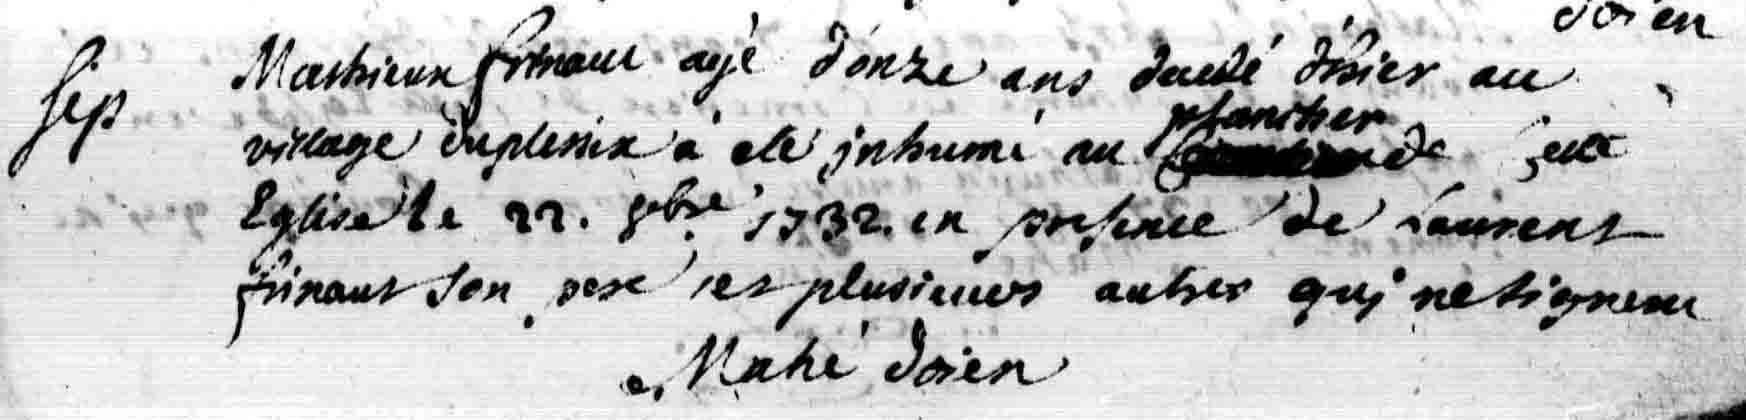 doien
Sep Mathieux frinaut agé d'onze ans decdé d'hier au
village duplessix a eté jnhumé au plancher de cette
Eglise le 22. 8bre 1732. en presence de Laurent
frinaut son pere et plusieurs autres quj ne signent
Mahé doien